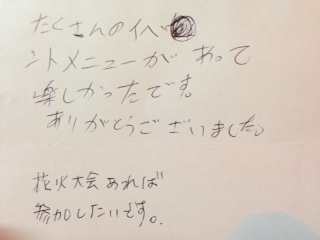 たくさんのイベ
ントメニューが あって
楽しかったです。
ありがとうございました。
花火大会あれば
参加したいです。